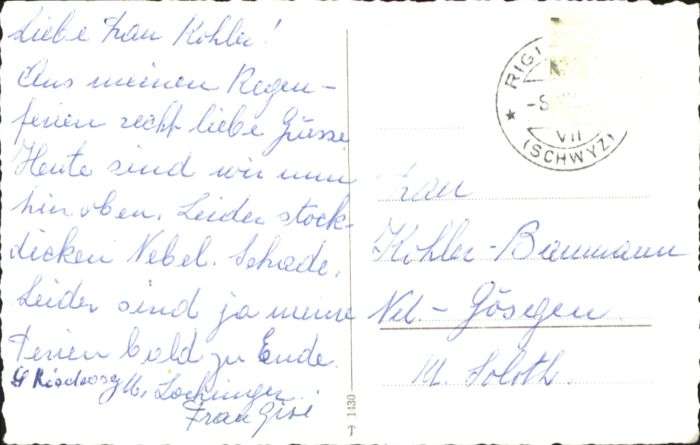 Liebe Frau Kohler!
Aus meinen Regen-
ferien recht liebe Grüsse
Heute sind wir nun
hin oben. Leider stock-
dicken Nebel. Schade.
Leider sind ja meine
Ferien bald zu Ende.
Frau Gisi
RIGI
VII
(SCHWYZ)
Frau
Kohler-Baumann
Nd.-Gösgen
Kt. Soloth.
T 1430